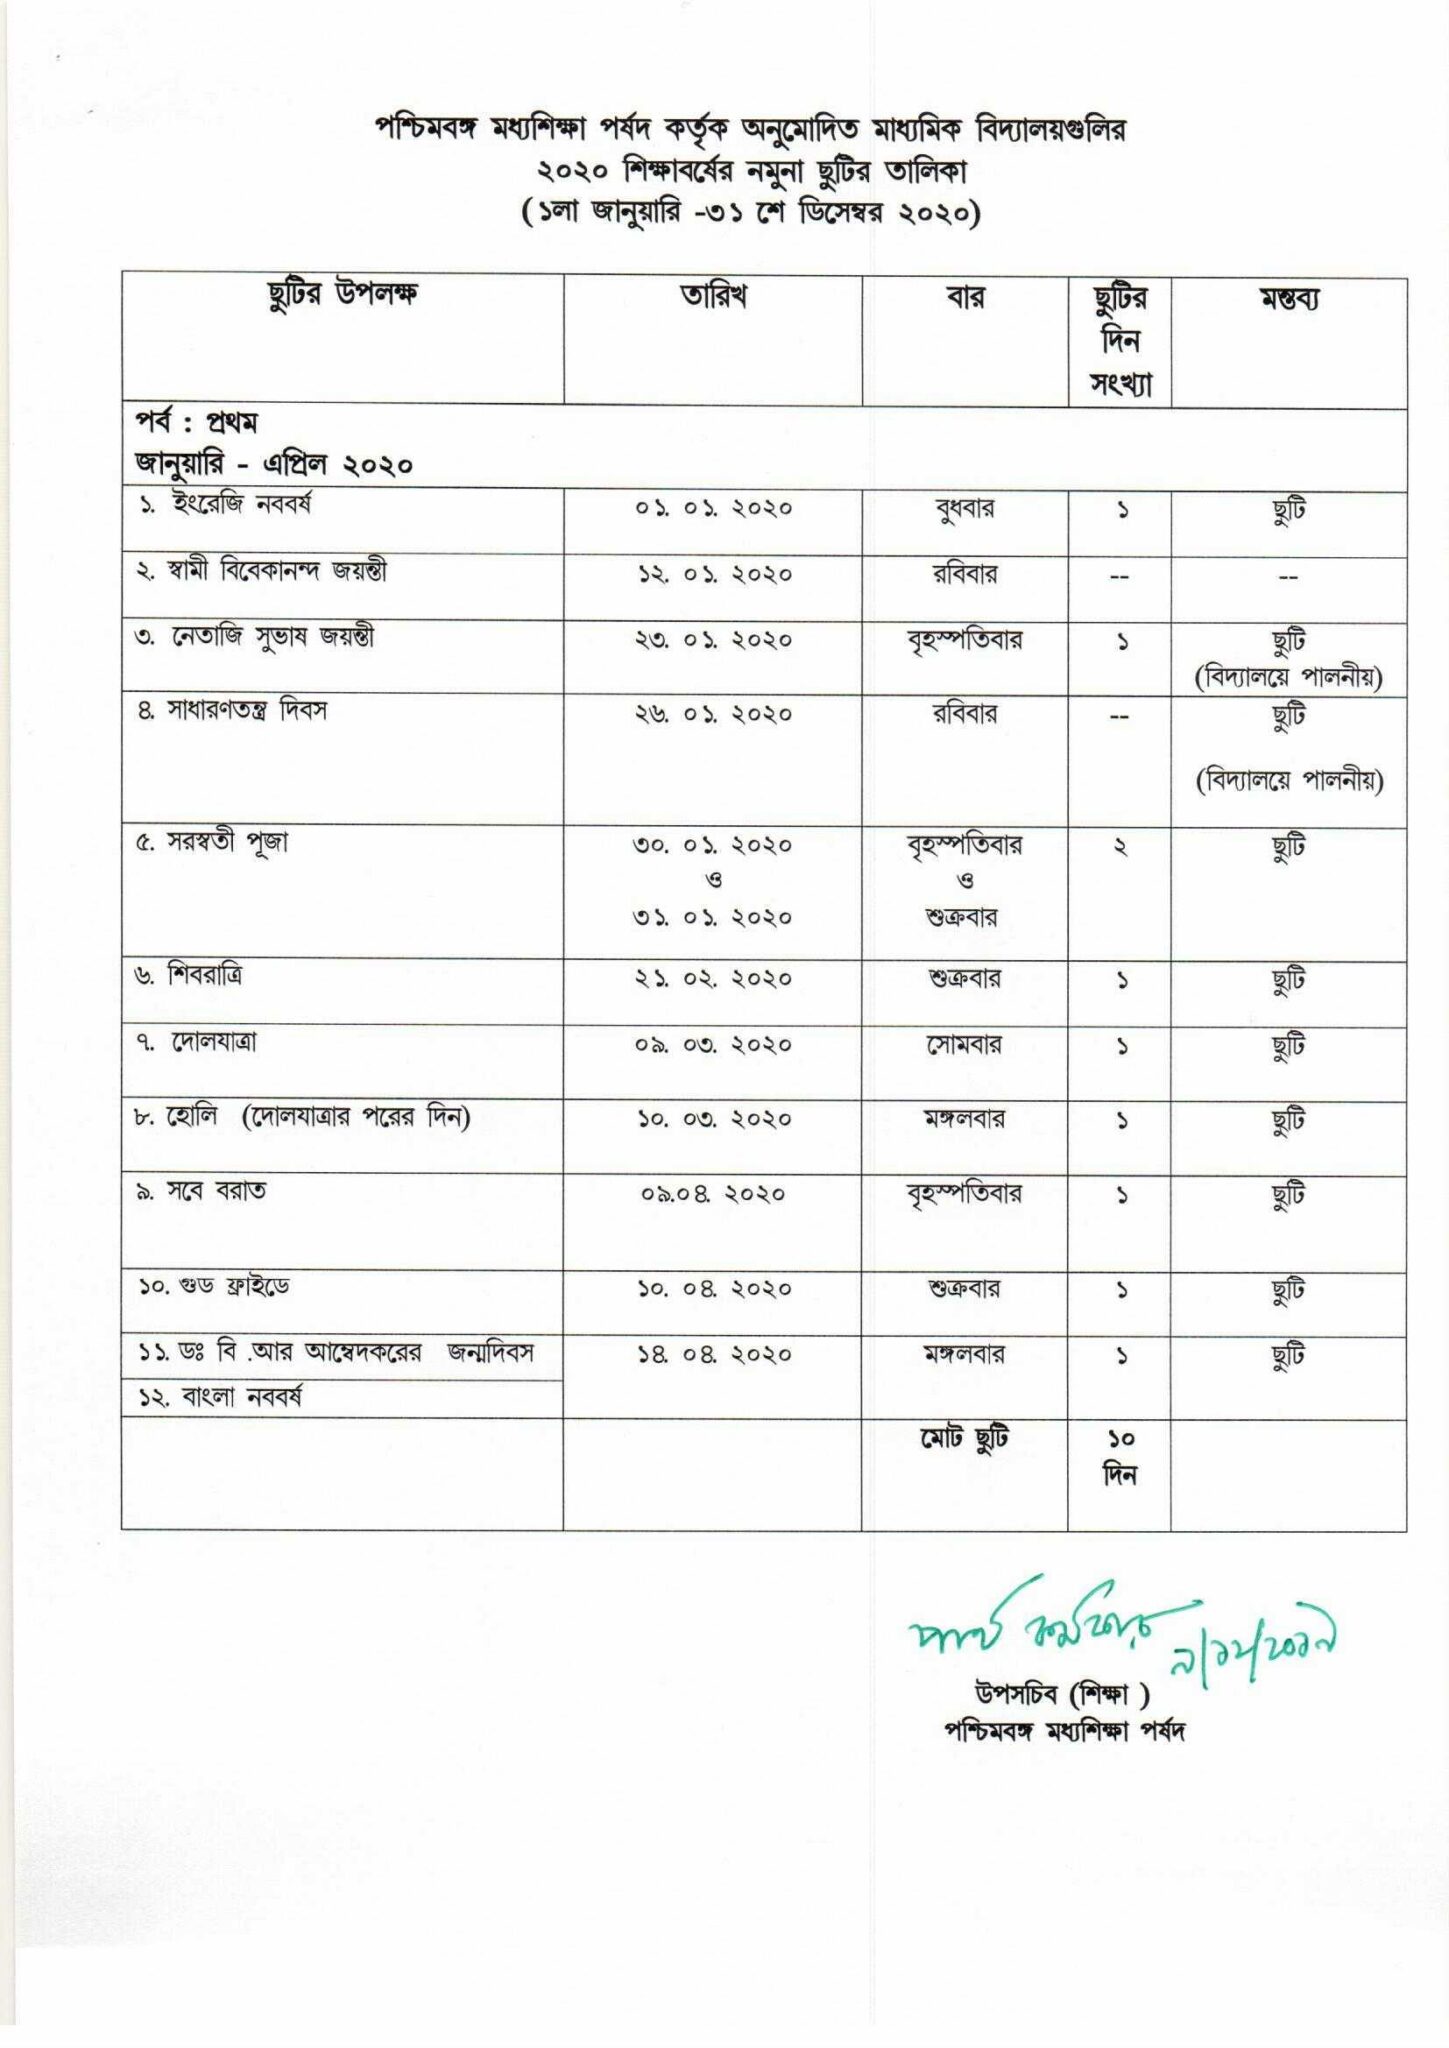 পশ্চিমবঙ্গ মধ্যশিক্ষা পর্ষদ কর্তৃক অনুমোদিত মাধ্যমিক বিদ্যালয়গুলির
২০২০ শিক্ষাবর্ষের নমুনা ছুটির তালিকা
(১লা জানুয়ারি -৩১ শে ডিসেম্বর ২০২০)
ছুটির উপলক্ষ তারিখ বার ছুটির দিন সংখ্যা মন্তব্য
পর্ব : প্রথম
জানুয়ারি - এপ্রিল ২০২০
১. ইংরেজি নববর্ষ ০১. ০১. ২০২০ বুধবার ১ ছুটি
২. স্বামী বিবেকানন্দ জয়ন্তী ১২. ০১. ২০২০ রবিবার -- --
৩. নেতাজি সুভাষ জয়ন্তী ২৩. ০১. ২০২০ বৃহস্পতিবার ১ ছুটি
(বিদ্যালয়ে পালনীয়)
৪. সাধারণতন্ত্র দিবস ২৬. ০১. ২০২০ রবিবার -- ছুটি
(বিদ্যালয়ে পালনীয়)
৫. সরস্বতী পূজা ৩০. ০১. ২০২০ বৃহস্পতিবার ২ ছুটি
ও ও
৩১. ০১. ২০২০ শুক্রবার
৬. শিবরাত্রি ২১. ০২. ২০২০ শুক্রবার ১ ছুটি
৭. দোলযাত্রা ০৯. ০৩. ২০২০ সোমবার ১ ছুটি
৮. হোলি (দোলযাত্রার পরের দিন) ১০. ০৩. ২০২০ মঙ্গলবার ১ ছুটি
৯. সবে বরাত ০৯.০৪. ২০২০ বৃহস্পতিবার ১ ছুটি
১০. গুড ফ্রাইডে ১০. ০৪. ২০২০ শুক্রবার ১ ছুটি
১১. ডঃ বি .আর আম্বেদকরের জন্মদিবস ১৪. ০৪. ২০২০ মঙ্গলবার ১ ছুটি
১২. বাংলা নববর্ষ
মোট ছুটি ১০
দিন
পার্থ কর্মকার ৯/১২/২০১৯
উপসচিব (শিক্ষা )
পশ্চিমবঙ্গ মধ্যশিক্ষা পর্ষদ